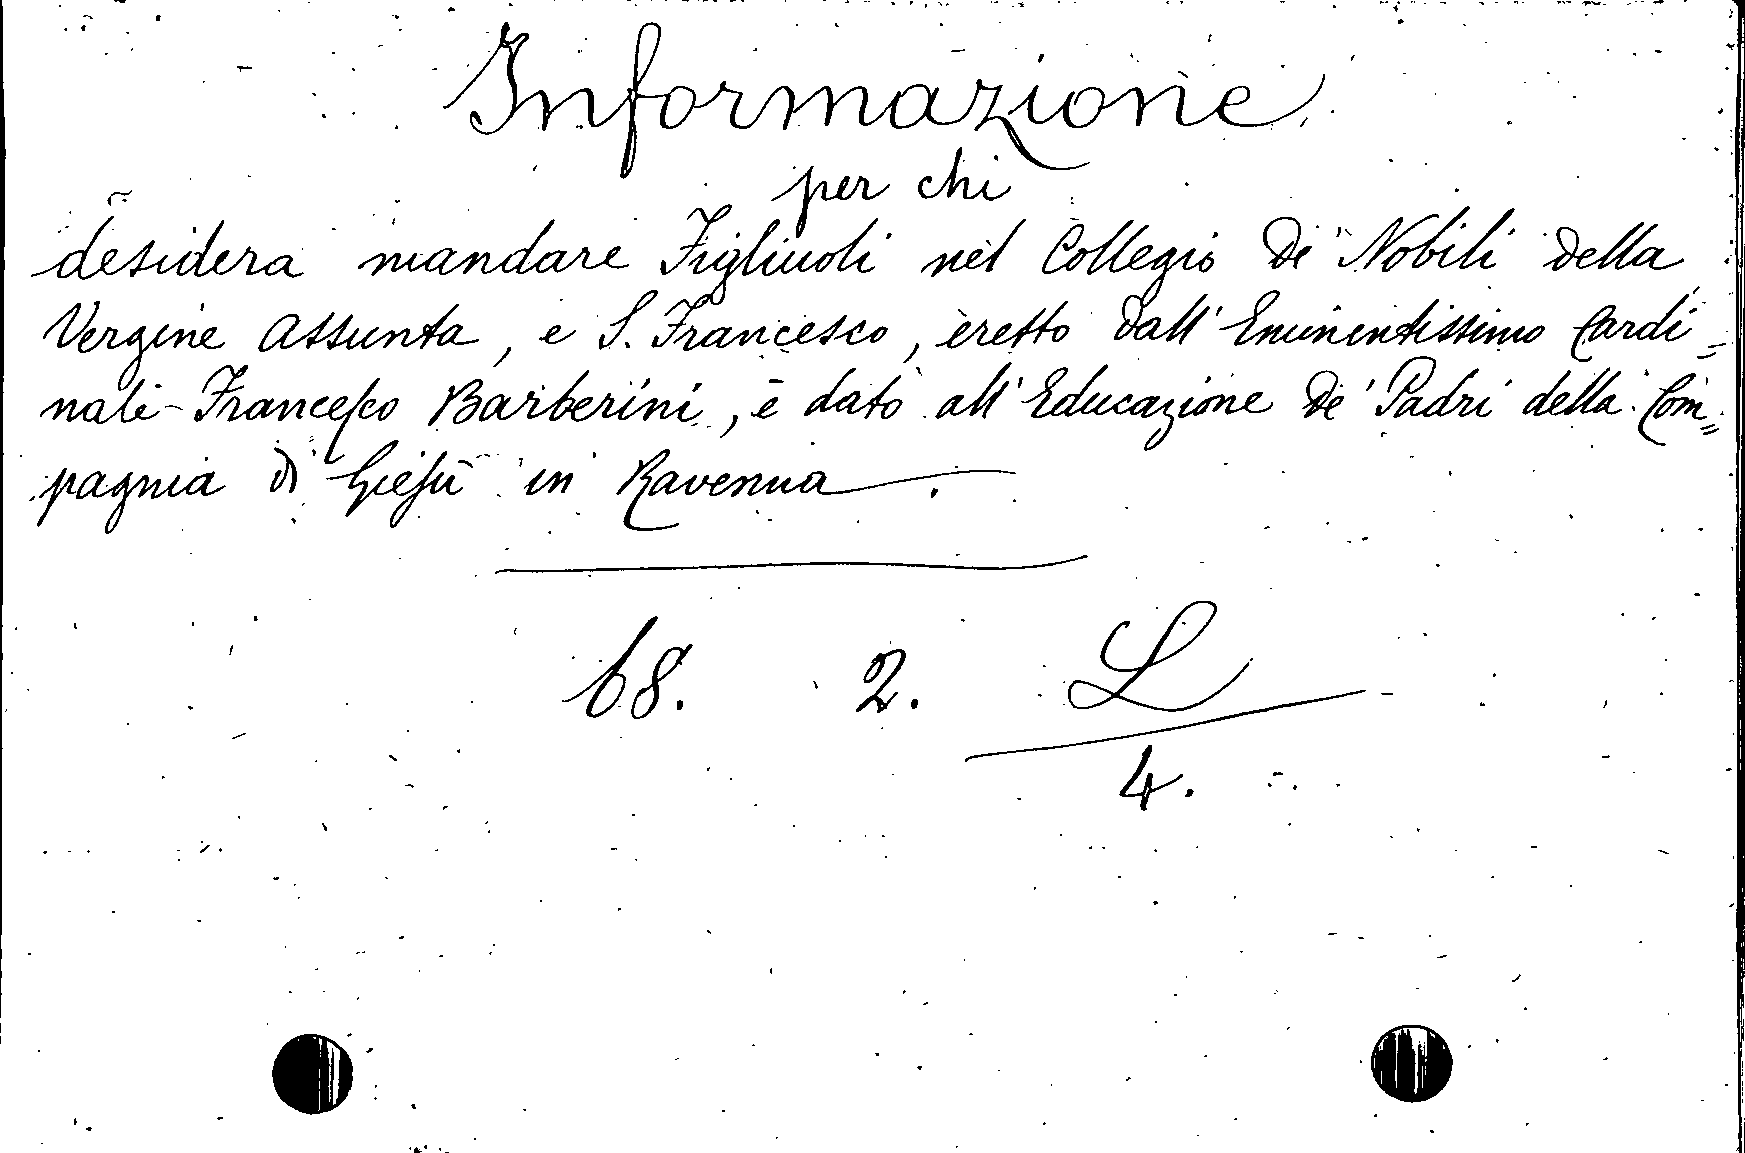 Informazione
per chi
desidera mandare Figliuoli nel Collegio de' Nobili della
Vergine Assunta, e S. Francesco, eretto dall' Eminentissimo Cardi=
nale Francesco Barberini, e dato all' Educazione de' Padri della Com=
pagnia di Giesù in Ravenna.
68. 2. L
4.